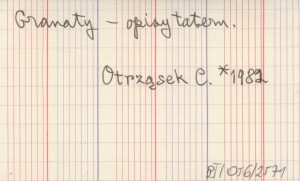 Granaty - opisy tatem.
Otrząsek C. *1982
PJ/OJ6/2571